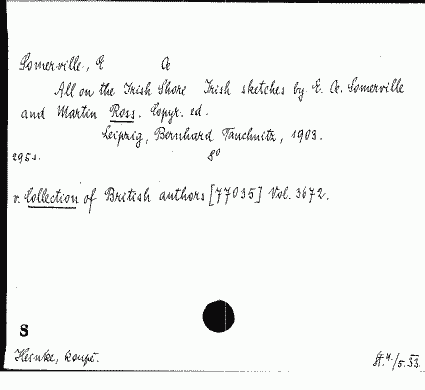 Somerville, E Œ
All on the Irish Shore Irish sketches by E. Œ. Somerville
and Martin Ross. Copyr. ed.
Leipzig, Bernhard Tauchnitz, 1903.
295 s. 8°
v. Collection of British authors [77035] Vol. 3672.
S
Heinke, koupě.